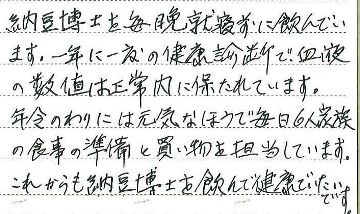 納豆博士を毎晩就寝前に飲んでい
ます。一年に一度の健康診断で血液
の数値は正常内に保たれています。
年令のわりには元気なほうで毎日6人家族
の食事の準備と買い物を担当しています。
これからも納豆博士を飲んで健康でいたい
です。